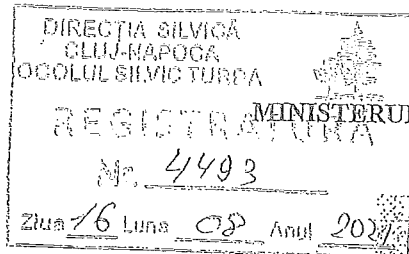 DIRECȚIA SILVICĂ
CLUJ-NAPOCA
OCOLUL SILVIC TURDA
REGISTRATURA
MINISTERUL
Nr. 4493
Ziua 16 Luna 08 Anul 2021